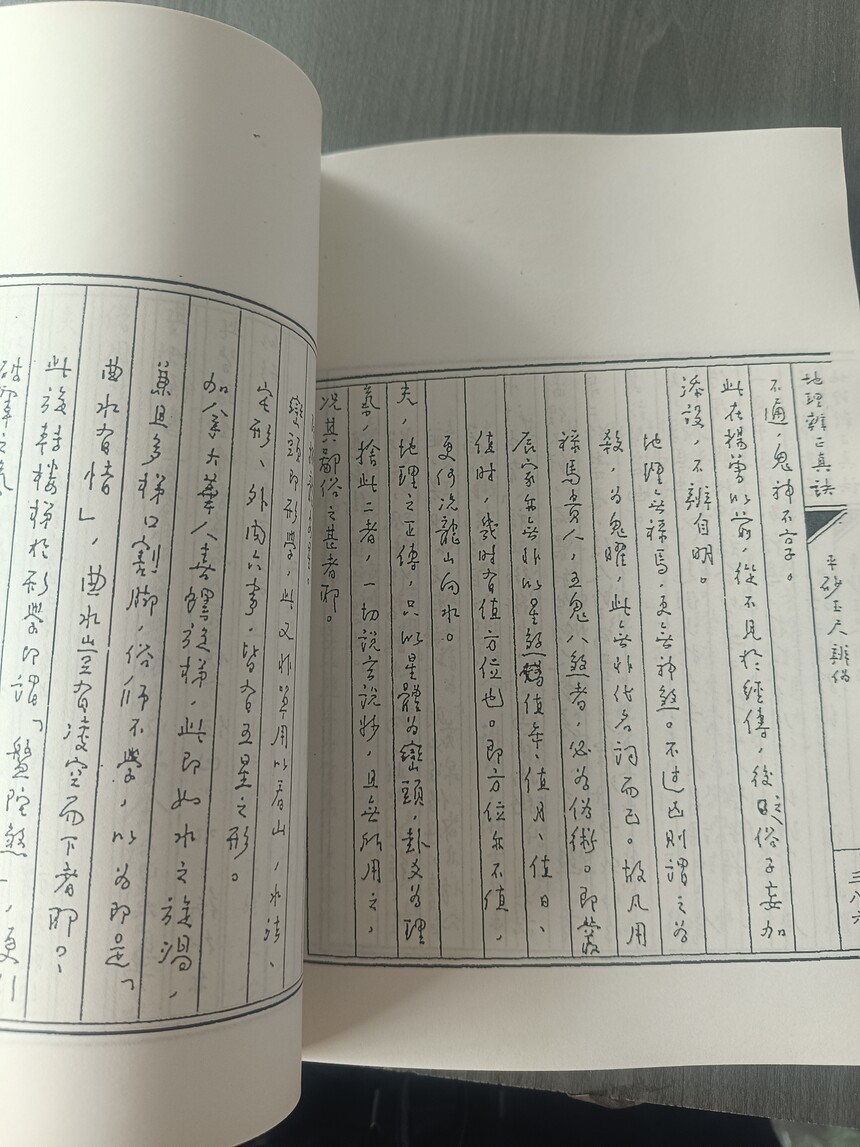 地理辨正真訣
平砂玉尺辨偽
三八六
不通,鬼神不享。
此在楊曾以前,從不見於經傳,後之俗子妄加
添設,不辨自明。
地理無祿馬,更無神煞。不過凶則謂之為
殺,為鬼曜,此無非代名詞而已。故凡用
祿馬貴人,五鬼八煞者,必為偽術。即叢
辰家亦無非以星煞值年、值月、值日、
值時,幾時有值方位也。即方位亦不值,
更何况龍山向水。
夫,地理之正傳,只以星體為巒頭,卦爻為理
氣,捨此二者,一切說玄說妙,且無所用之,
况其鄙俗之甚者耶。
巒頭即形學,此又非單用以看山,水法、
宅形、外内六事,皆有五星之形。
加拿大華人喜螺旋梯,此即如水之旋渦,
兼且多梯口割脚,俗師不學,以為即是「
曲水有情」,曲水豈有凌空而下者耶?、
此旋轉樓梯於形學即謂「盤陀煞」,更引